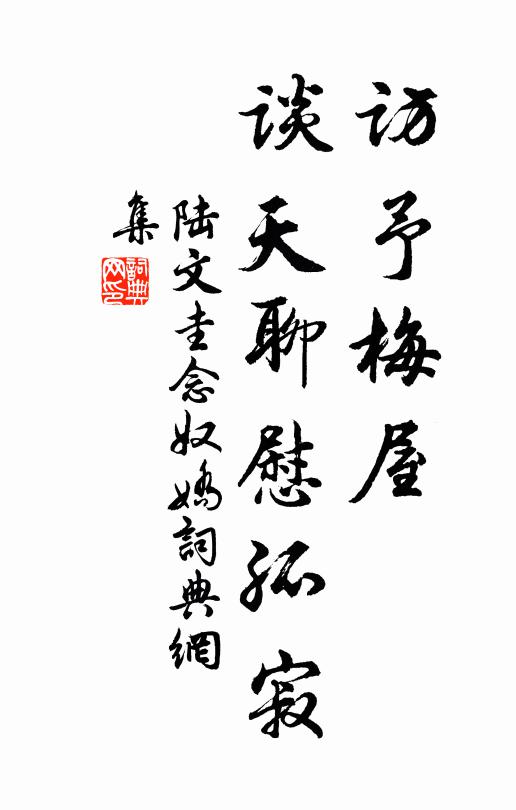 访予梅屋
谈天聊慰孤寂
陆文圭念奴娇詞典網
集
詞典
网印